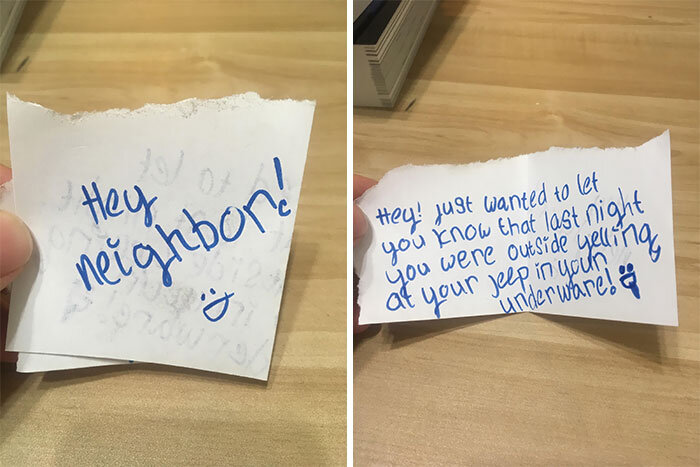 Hey
neighbor!
Hey! Just wanted to let
you know that last night
you were outside yelling
at your jeep in your
underware!